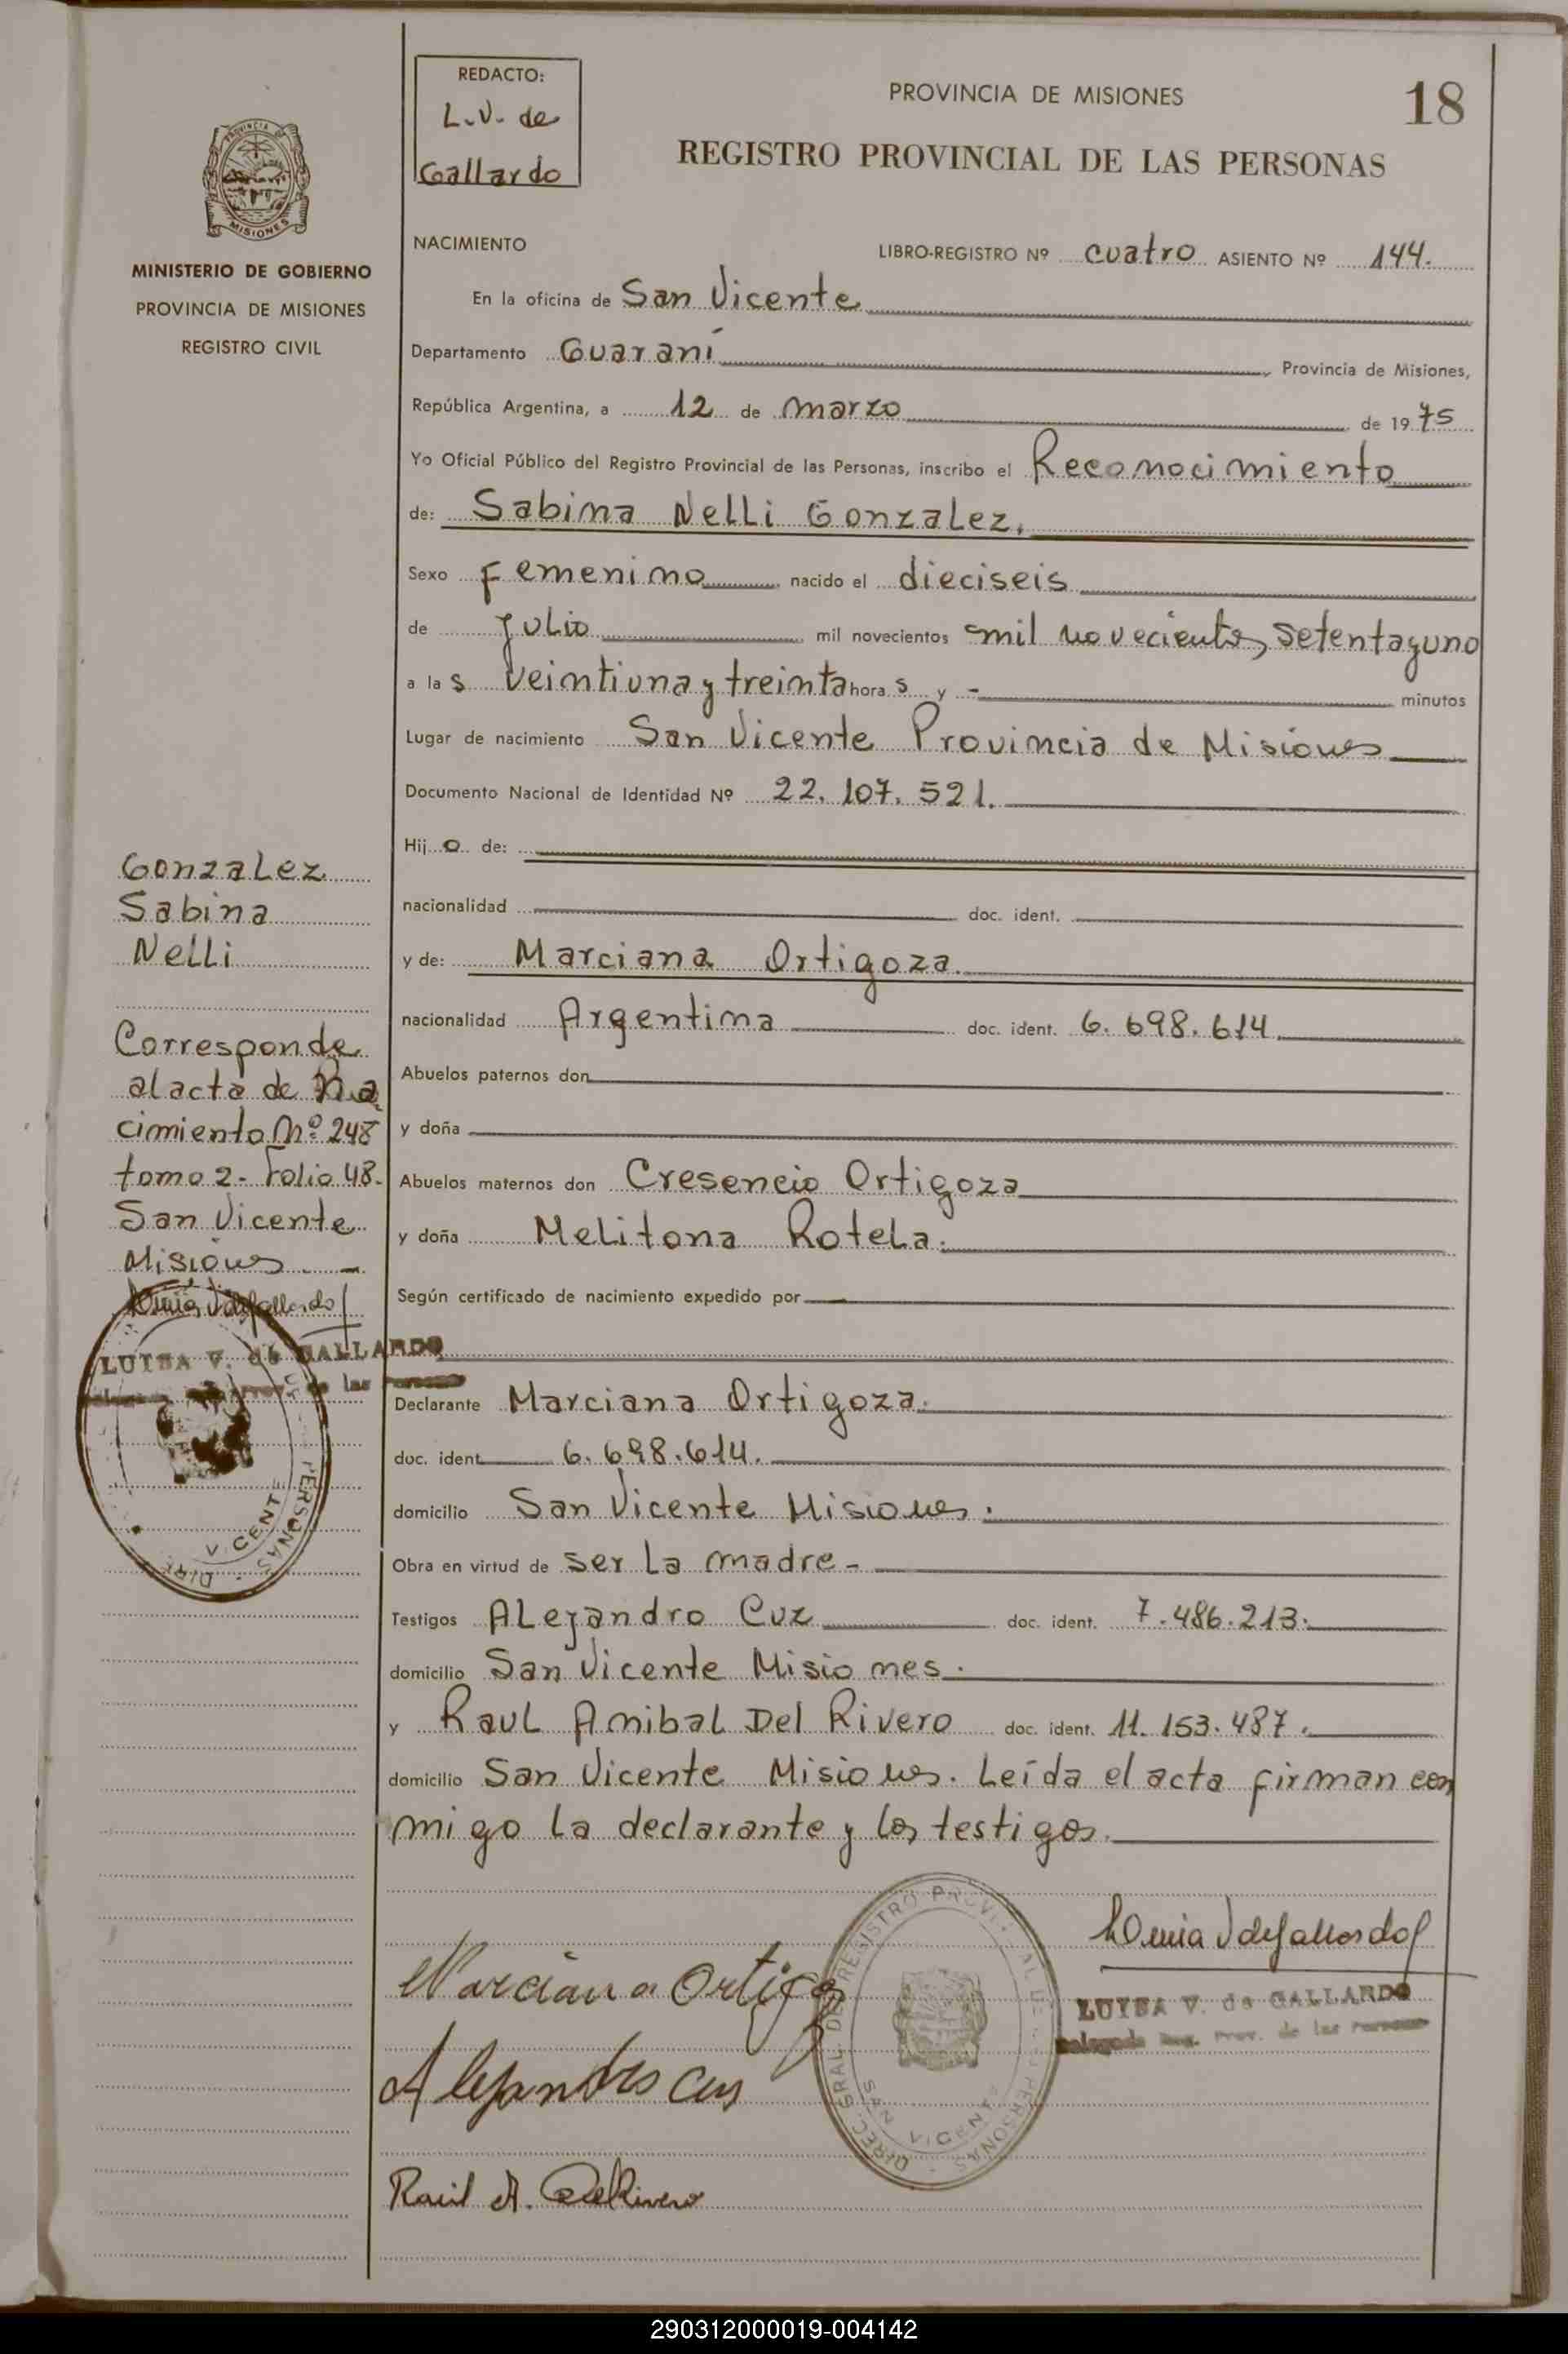 REDACTO:
L.V. de
Gallardo
PROVINCIA DE MISIONES
18
REGISTRO PROVINCIAL DE LAS PERSONAS
MISIONES
MINISTERIO DE GOBIERNO
PROVINCIA DE MISIONES
REGISTRO CIVIL
NACIMIENTO
LIBRO-REGISTRO Nº cuatro ASIENTO Nº 144.
En la oficina de San Vicente
Departamento Guaraní, Provincia de Misiones,
República Argentina, a 12 de marzo de 1975
Yo Oficial Público del Registro Provincial de las Personas, inscribo el Reconocimiento
de: Sabina Nelli Gonzalez.
Sexo femenino nacido el dieciseis
de julio mil novecientos mil novecientos setentayuno
a las veintiuna y treinta horas y - minutos
Lugar de nacimiento San Vicente Provincia de Misiones
Documento Nacional de Identidad Nº 22.107.521.
Hijo de:
nacionalidad doc. ident.
y de: Marciana Ortigoza.
nacionalidad Argentina doc. ident. 6.698.614
Abuelos paternos don
y doña
Abuelos maternos don Cresencio Ortigoza
y doña Melitona Rotela.
Según certificado de nacimiento expedido por
Declarante Marciana Ortigoza.
doc. ident 6.698.614.
domicilio San Vicente Misiones.
Obra en virtud de ser la madre-
Testigos Alejandro Cuz doc. ident. 7.486.213.
domicilio San Vicente Misiones.
y Raul Anibal Del Rivero doc. ident. 11.153.487.
domicilio San Vicente Misiones. Leída el acta firman con
migo la declarante y los testigos.
Gonzalez
Sabina
Nelli
Corresponde
al acta de Na
cimiento Nº 248
tomo 2- Folio 48.
San Vicente
Misiones
LUISA V. de GALLARDO
PERSONAS
VICENTE
Marciana Ortigoza
LUISA V. de GALLARDO
Delegada Reg. Prov. de las Personas
SAN VICENTE
Alejandro Cuz
Raúl A. Del Rivero
290312000019-004142